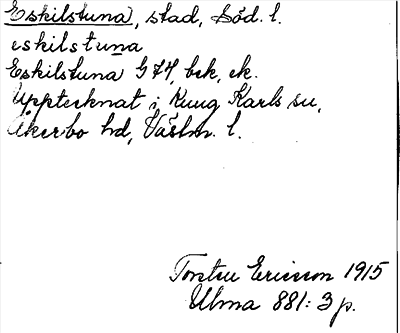 Eskilstuna, stad, Söd. l.
eskilstuna
Eskilstuna G74, bck, ek.
Upptecknat i Kung Karls sn,
Åkerbo hd, Västm. l.
Torsten Ericsson 1915
Ulma 881: 3 p.